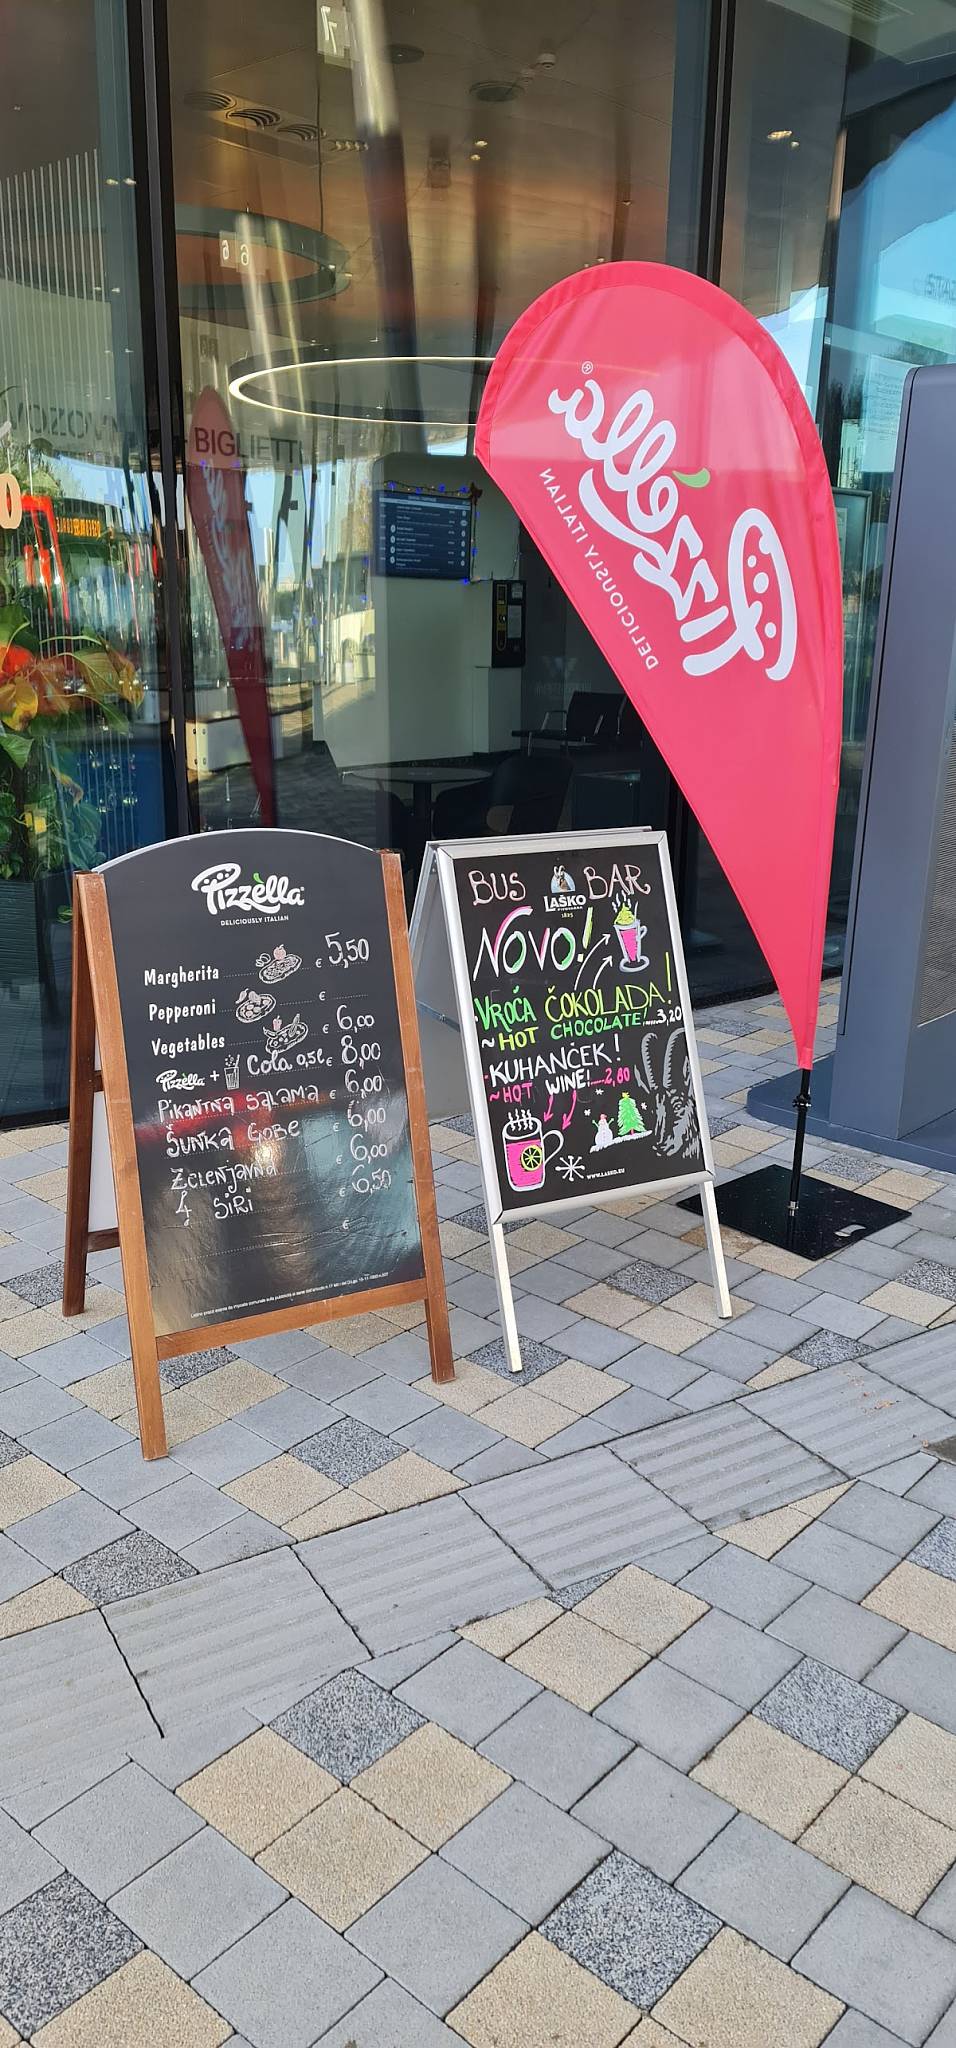 7
6
6
BIGLIETTI
Pizzèlla®
DELICIOUSLY ITALIAN
Pizzèlla
DELICIOUSLY ITALIAN
Margherita € 5,50
Pepperoni €
Vegetables € 6,00
Pizzèlla + Cola 0,5l € 8,00
Pikantna salama € 6,00
Šunka gobe € 6,00
Zelenjavna € 6,00
4 siri € 6,50
€
BUS LAŠKO BAR
1825
NOVO!
VROČA ČOKOLADA!
~ HOT CHOCOLATE!....3,20
KUHANČEK!
~HOT WINE!...2,80
WWW.LASKO.EU